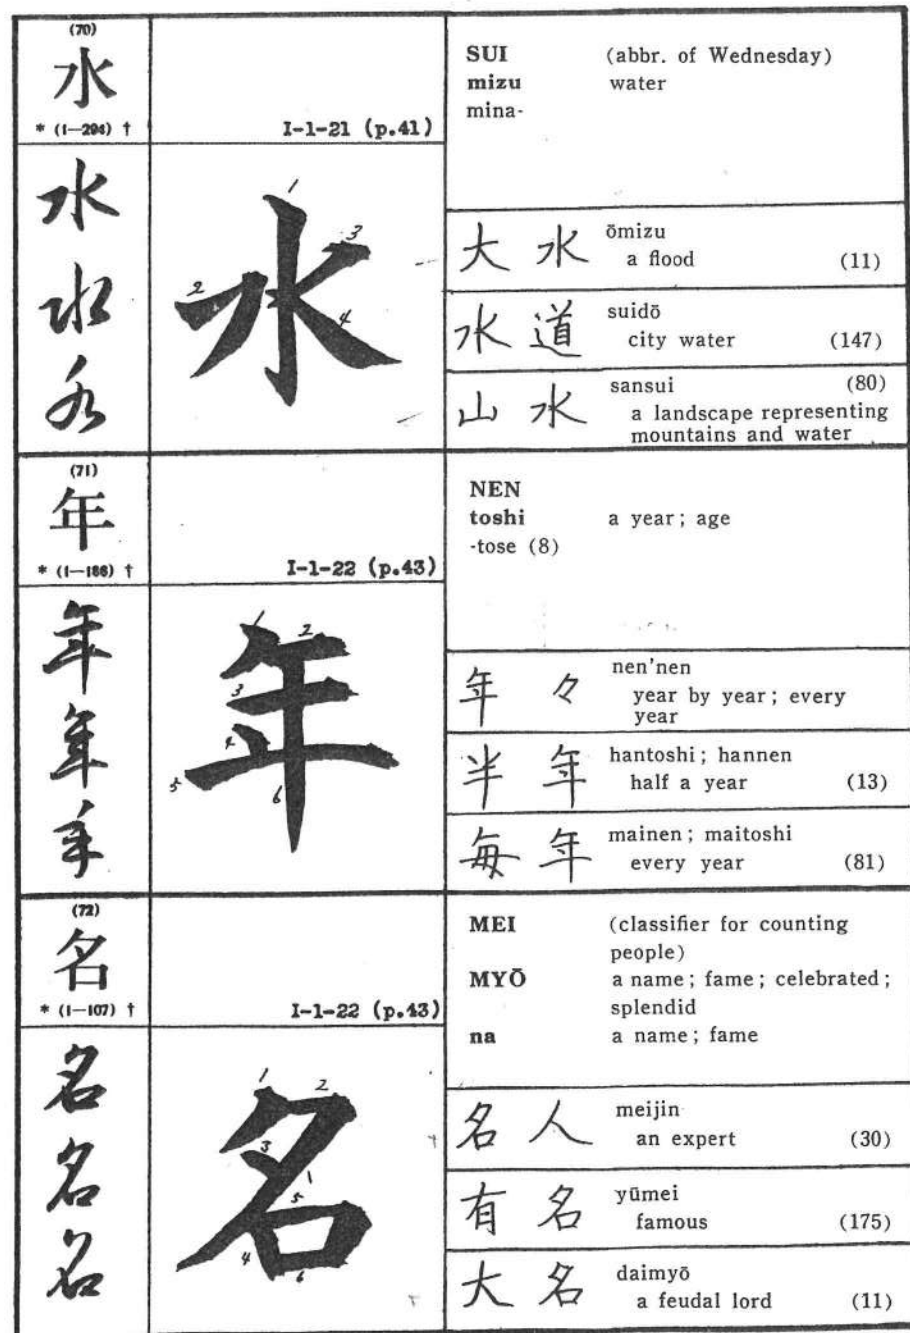 (70)
水
* (1—294) †
I-1-21 (p.41)
水
水
水
水
1
2
3
4
SUI (abbr. of Wednesday)
mizu water
mina-
大水 ōmizu
a flood (11)
水道 suidō
city water (147)
山水 sansui (80)
a landscape representing
mountains and water
(71)
年
* (1—186) †
I-1-22 (p.43)
年
年
年
年
1
2
3
4
5
6
NEN
toshi a year; age
-tose (8)
年々 nen'nen
year by year; every
year
半年 hantoshi; hannen
half a year (13)
毎年 mainen; maitoshi
every year (81)
(72)
名
* (1—107) †
I-1-22 (p.43)
名
名
名
名
1
2
3
1
5
4
6
MEI (classifier for counting
people)
MYŌ a name; fame; celebrated;
splendid
na a name; fame
名人 meijin
an expert (30)
有名 yūmei
famous (175)
大名 daimyō
a feudal lord (11)